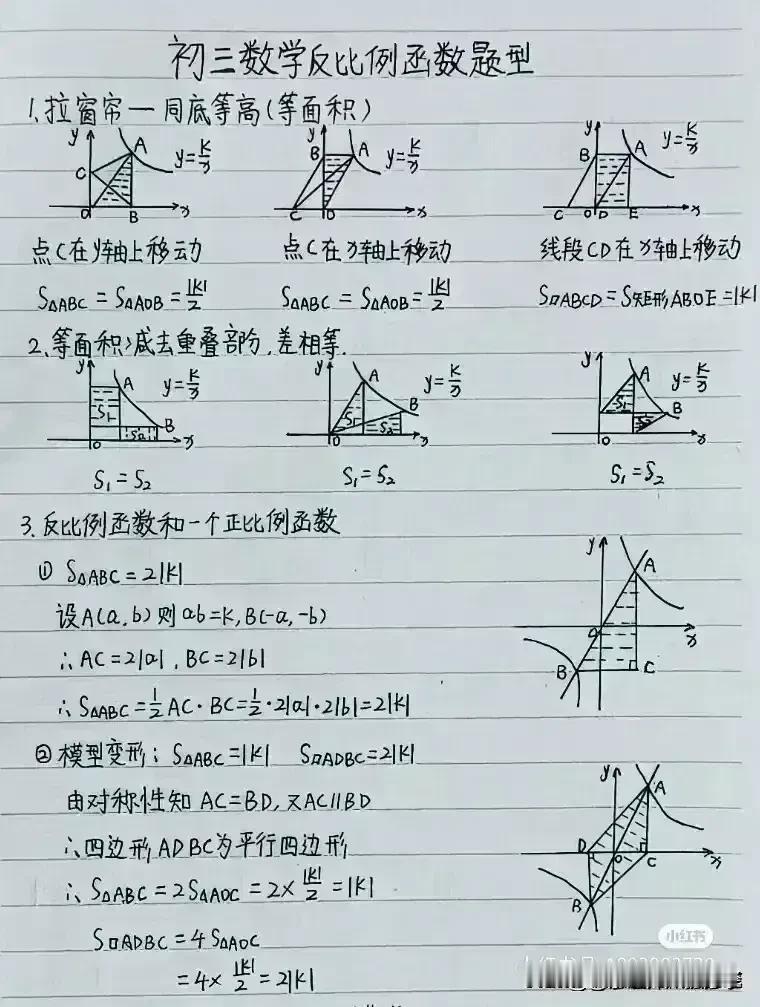 初三数学反比例函数题型
1、拉窗帘一同底等高(等面积)
y A C y=K/x O B x
y B A y=K/x C O x
y B A y=K/x C O D E x
点C在y轴上移动 点C在x轴上移动 线段CD在x轴上移动
S△ABC=S△AOB=|K|/2 S△ABC=S△AOB=|K|/2 S□ABCD=S矩形ABOE=|K|
2、等面积减去重叠部分,差相等.
y A y=K/x S1 B S2 O x
y A y=K/x B S1 S2 O x
y A y=K/x S1 B S2 x
S1=S2 S1=S2 S1=S2
3、反比例函数和一个正比例函数
① S△ABC=2|K|
设A(a,b)则ab=K,B(-a,-b)
∴AC=2|a|,BC=2|b|
∴S△ABC=1/2AC·BC=1/2·2|a|·2|b|=2|K|
y A O x B C
②模型变形:S△ABC=|K| S□ADBC=2|K|
由对称性知AC=BD,又AC∥BD
∴四边形ADBC为平行四边形
∴S△ABC=2S△AOC=2×|K|/2=|K|
S□ADBC=4S△AOC
=4×|K|/2=2|K|
y A D O C x B
小红书